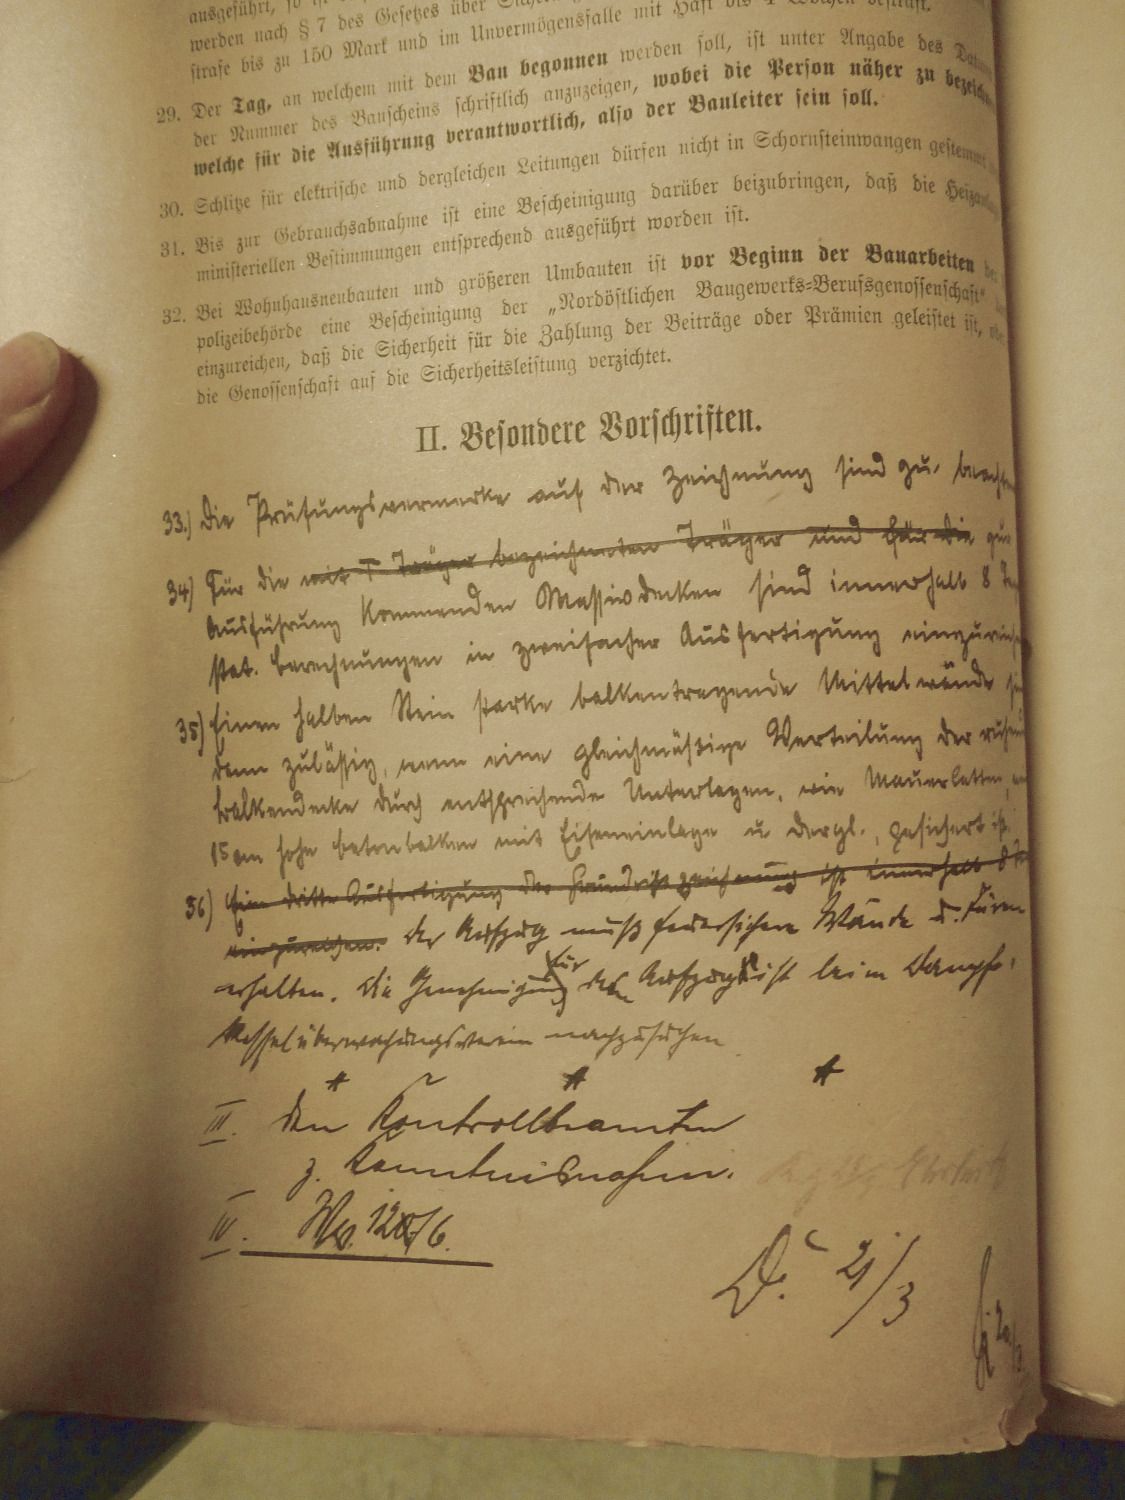 ausgeführt, so
werden nach § 7 des Gesetzes über
strafe bis zu 150 Mark und im Unvermögensfalle mit Haft bis 4 Wochen bestraft.
29. Der Tag, an welchem mit dem Bau begonnen werden soll, ist unter Angabe des
der Nummer des Bauscheins schriftlich anzuzeigen, wobei die Person näher zu
welche für die Ausführung verantwortlich, also der Bauleiter sein soll.
30. Schlitze für elektrische und dergleichen Leitungen dürfen nicht in Schornsteinwangen gestemmt
31. Bis zur Gebrauchsabnahme ist eine Bescheinigung darüber beizubringen, daß die
ministeriellen Bestimmungen entsprechend ausgeführt worden ist.
32. Bei Wohnhausneubauten und größeren Umbauten ist vor Beginn der Bauarbeiten
polizeibehörde eine Bescheinigung der „Nordöstlichen Baugewerks-Berufsgenossenschaft"
einzureichen, daß die Sicherheit für die Zahlung der Beiträge oder Prämien geleistet ist,
die Genossenschaft auf die Sicherheitsleistung verzichtet.
II. Besondere Vorschriften.
33.) Die Prüfungsvermerke auf der Zeichnung sind zu
34) Für die mit T Träger bezeichneten Träger und für die zur
Ausführung kommenden Massivdecken sind innerhalb 8
stat. Berechnungen in zweifacher Ausfertigung
35) Einen halben Stein starke balkentragende Mittelwände
dann zulässig, wenn eine gleichmäßige Verteilung der
Balkendecke durch entsprechende Unterlagen, wie Mauerlatten,
15 cm hohe Betonbalken mit Eiseneinlage u dergl., gesichert ist.
36) Eine dritte Ausfertigung der Grundrißzeichnung ist innerhalb 8
einzureichen. Der Aufzug muß feuersichere Wände u. Türen
erhalten. Die Genehmigung für den Aufzug ist beim Dampf-
kesselüberwachungsverein nachzusuchen
III. Den Kontrollbeamten
z. Kenntnisnahme.
IV.
D. 21/3